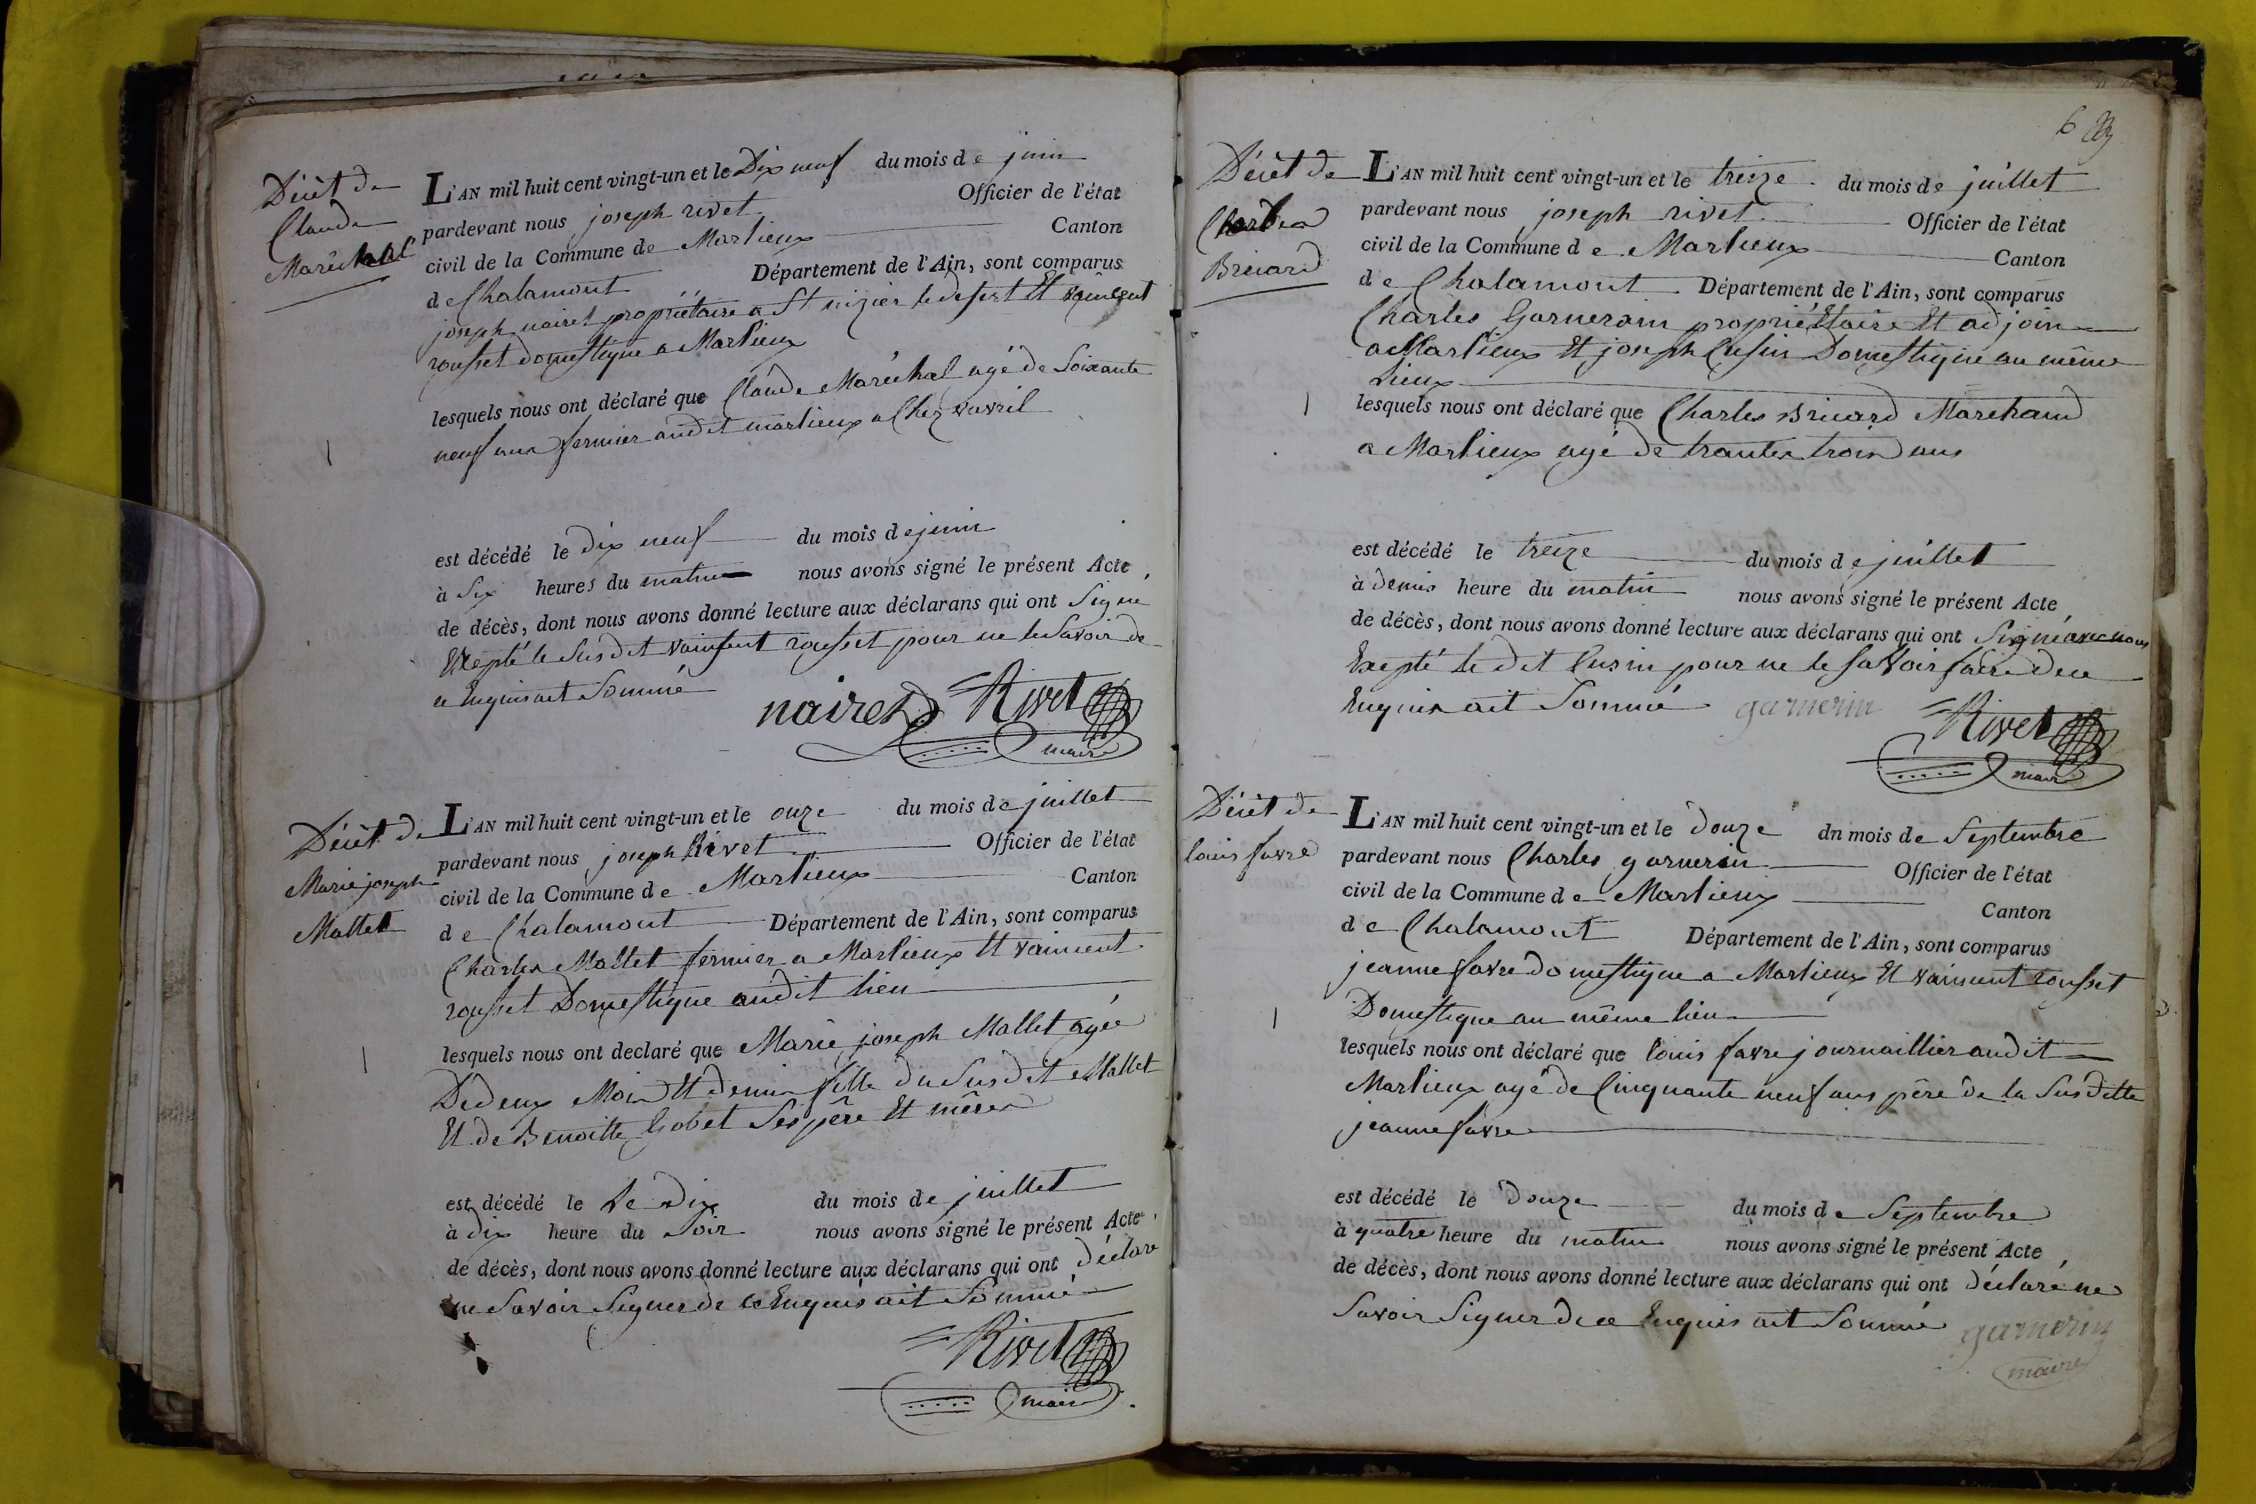 Décèt de
Claude
Maréchal
L'AN mil huit cent vingt-un et le Dix neuf du mois de juin
pardevant nous joseph rivet Officier de l'état
civil de la Commune de Marlieux Canton
de Chalamont Département de l'Ain, sont comparus
joseph nairet propriétaire a St nizier le desert Et
rousset domestique a Marlieux
lesquels nous ont déclaré que Claude Maréchal agé de Soixante
neuf ans fermier audit marlieux a Chez vavril
est décédé le dix neuf du mois de juin
à Six heures du matin nous avons signé le présent Acte
de décès, dont nous avons donné lecture aux déclarans qui ont Signé
Exepté le Susdit vainsent rousset pour ne le Savoir de
ce Enquis ait Sommé
nairet Rivet
maire
Décèt de
Marie joseph
Mallet
L'AN mil huit cent vingt-un et le onze du mois de juillet
pardevant nous joseph Rivet Officier de l'état
civil de la Commune de Marlieux Canton
de Chalamont Département de l'Ain, sont comparus
Charles Mallet fermier a Marlieux Et vaincent
rousset Domestique audit lieu
lesquels nous ont declaré que Marie joseph Mallet agée
De deux Mois Et demis fille du Susdit Mallet
Et de Benoitte Gobet Ses père Et mères
est décédé le le Dix du mois de juillet
à dix heure du Soir nous avons signé le présent Acte
de décès, dont nous avons donné lecture aux déclarans qui ont déclaré
ne Savoir Signer de ce Enquis ait Sommé
Rivet
maire
6
Décèt de
Charles
Bricard
L'AN mil huit cent vingt-un et le treize du mois de juillet
pardevant nous joseph rivet Officier de l'état
civil de la Commune de Marlieux Canton
de Chalamont Département de l'Ain, sont comparus
Charles Garnerain propriéttaire Et adjoin
a Marlieux Et joseph Cusin Domestique au même
Lieux
lesquels nous ont déclaré que Charles Bricard Marchand
a Marlieux agé de trantes trois ans
est décédé le treize du mois de juillet
à demis heure du matin nous avons signé le présent Acte
de décès, dont nous avons donné lecture aux déclarans qui ont Signé avec nous
Exepté le dit Cusin pour ne le savoir faire de ce
Enquis ait Sommé
garnerin Rivet
maire
Décèt de
louis favre
L'AN mil huit cent vingt-un et le douze dn mois de Septembre
pardevant nous Charles garnerin Officier de l'état
civil de la Commune de Marlieux Canton
de Chalamont Département de l'Ain, sont comparus
jeanne favre domestique a Marlieux Et vaincent rousset
Domestique au même lieu
lesquels nous ont déclaré que louis favre journaillier audit
Marlieux agé de Cinquante neuf ans père de la Susditte
jeanne favre
est décédé le douze du mois de Septembre
à quatre heure du matin nous avons signé le présent Acte
de décès, dont nous avons donné lecture aux déclarans qui ont déclaré ne
Savoir Signer de ce Enquis ait Sommé
garnerin
maire